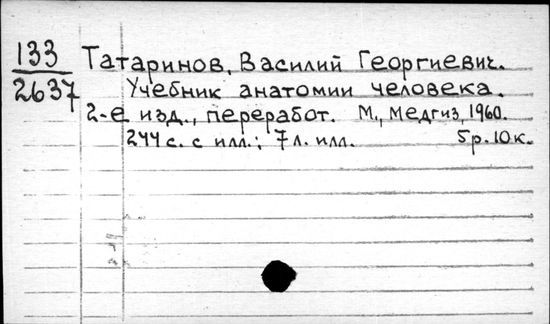 133
2637
Татаринов, Василий Георгиевич.
Учебник анатомии человека.
2-е изд., переработ. М., Медгиз, 1960.
244 с. с илл.; 7 л. илл. 5 р. 10 к.